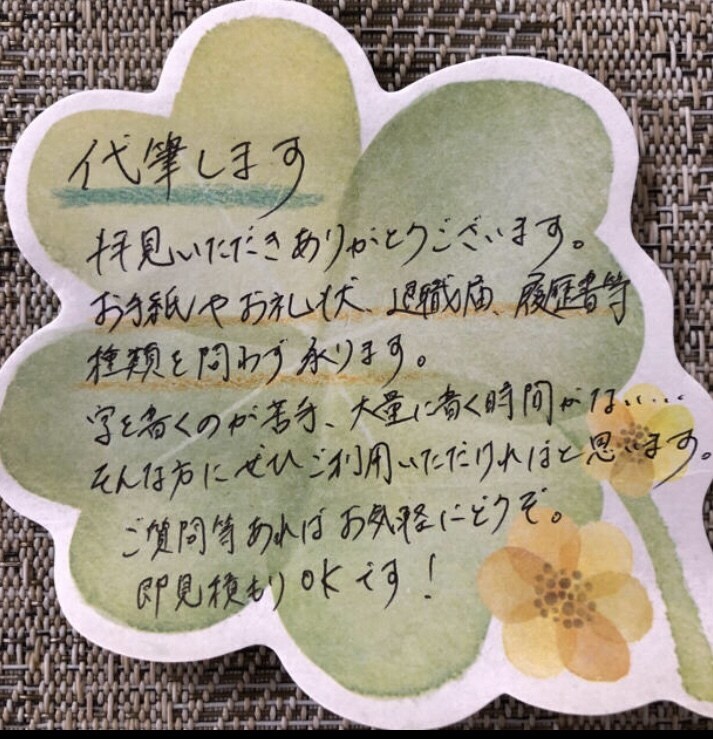 代筆します
拝見いただきありがとうございます。
お手紙やお礼状、退職届、履歴書等
種類を問わず承ります。
字を書くのが苦手、大量に書く時間がない…
そんな方にぜひご利用いただければと思います。
ご質問等あればお気軽にどうぞ。
即見積もりOKです！